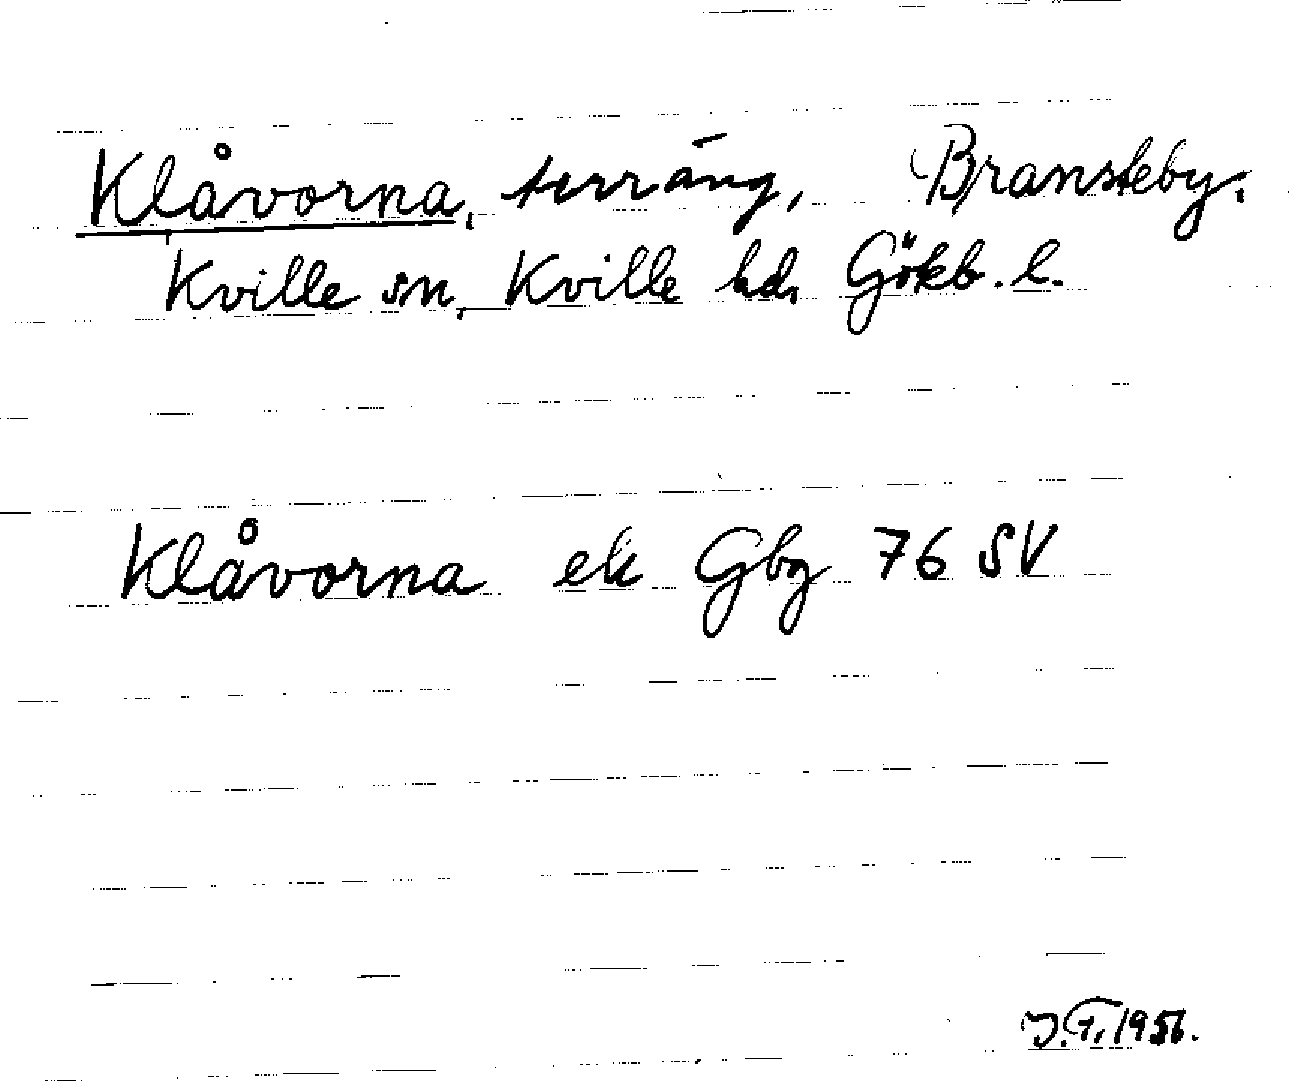 Klåvorna, terräng, Bransteby,
Kville sn, Kville hd, Gökb. l.
Klåvorna ek Gbg 76 SV
J.F. 1956.